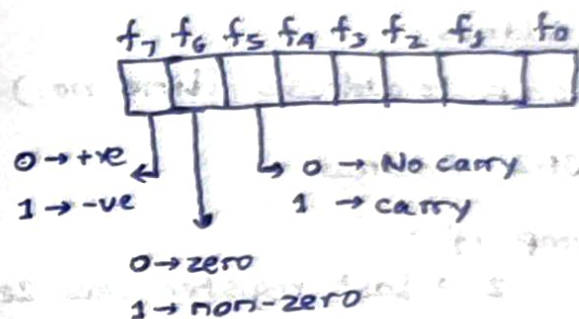 f7 f6 f5 f4 f3 f2 f1 f0
0 → +ve
1 → -ve
0 → No carry
1 → carry
0 → zero
1 → non-zero